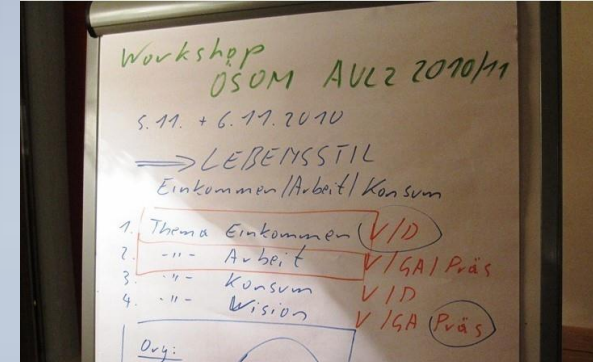 Workshop
ÖSOM AUL2 2010/11
5.11. + 6.11.2010
⇒ LEBENSSTIL
Einkommen/Arbeit/Konsum
1. Thema Einkommen V/D
2. -"- Arbeit V/GA/Präs
3. -"- Konsum V/D
4. -"- Wision V/GA Präs
Org: